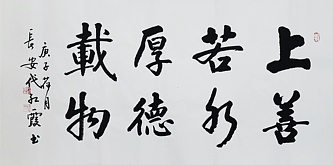 上善
若水
厚德
載物
庚子荷月
長安代紅霞书